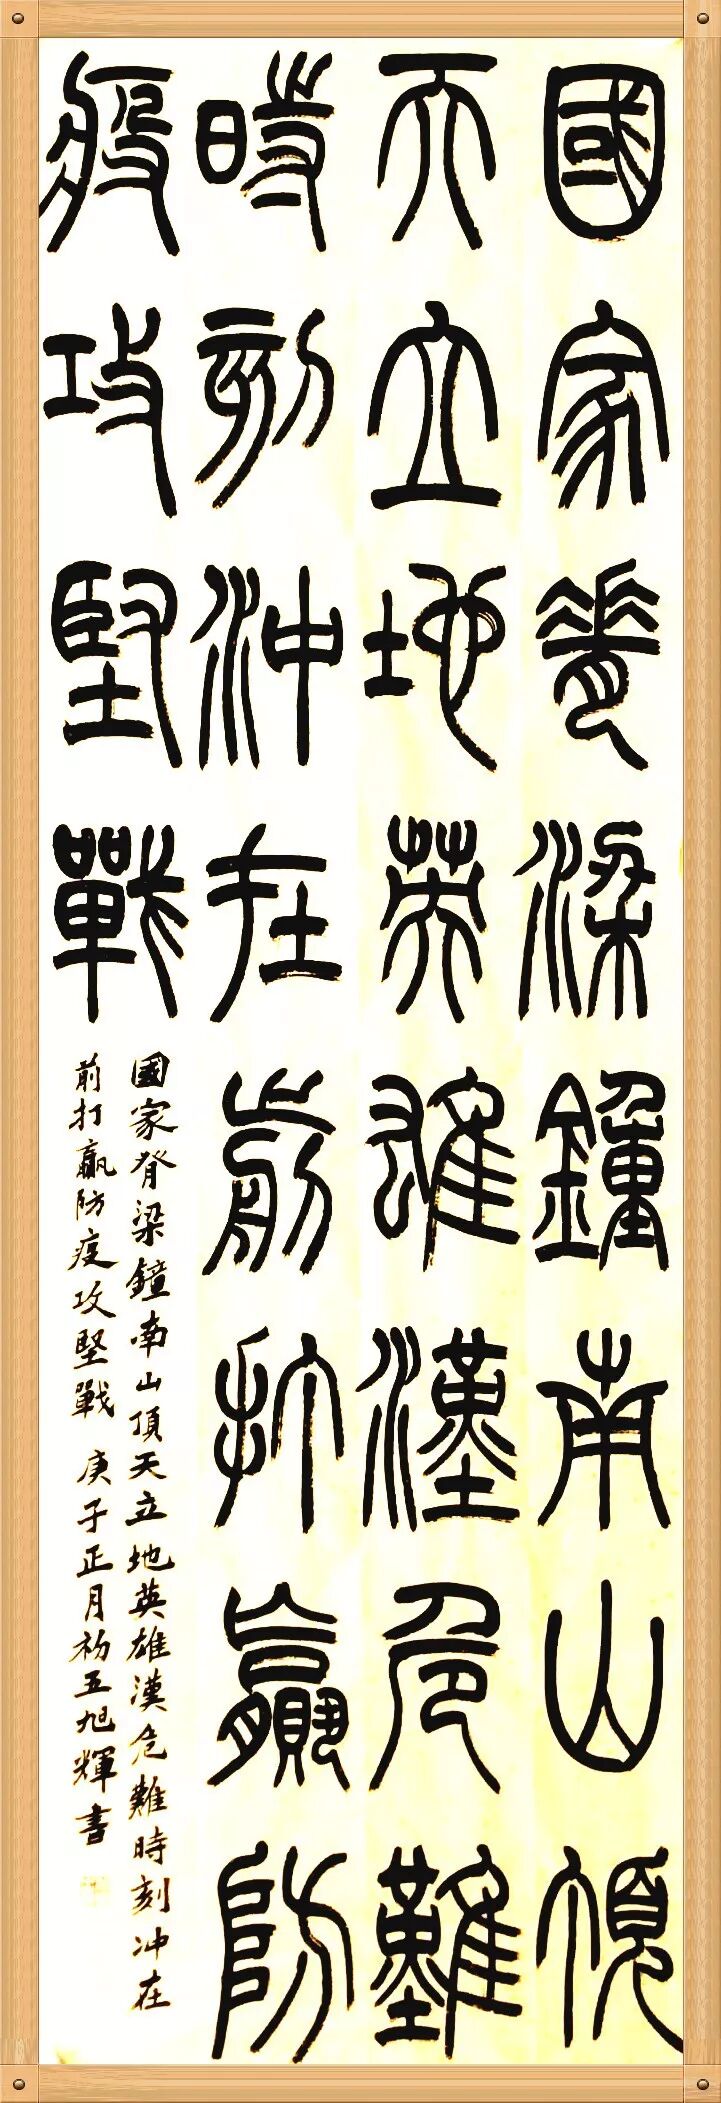 國家脊梁鐘南山頂
天立地英雄漢危難
時刻沖在前打贏防
疫攻堅戰
國家脊梁鐘南山頂天立地英雄漢危難時刻冲在
前打贏防疫攻堅戰 庚子正月初五旭輝書